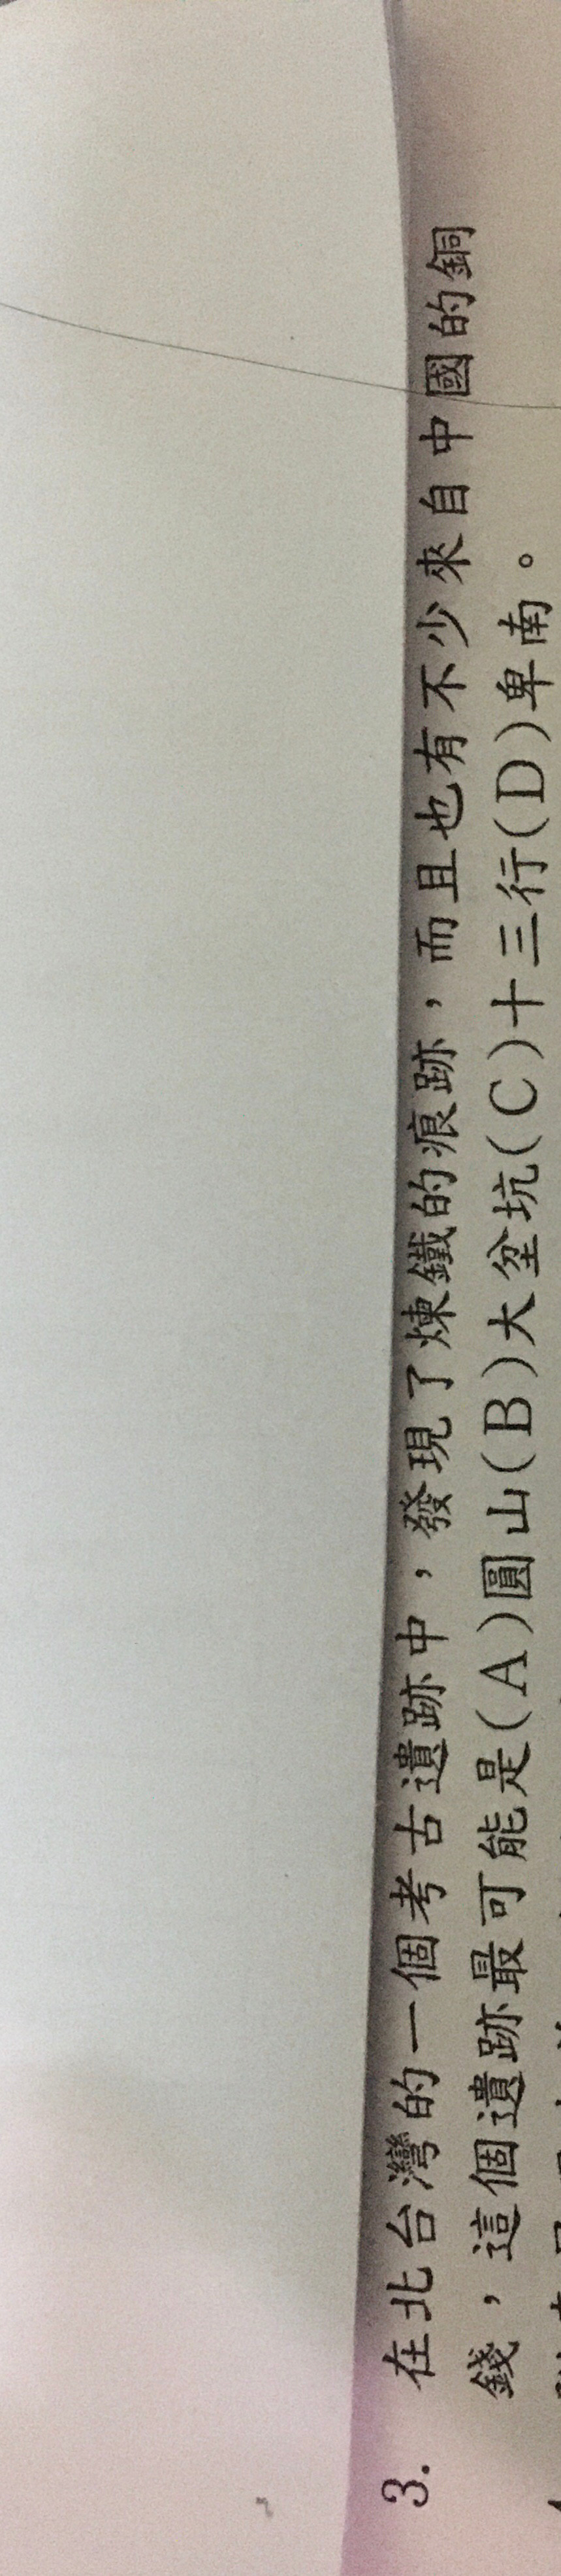 3. 在北台灣的一個考古遺跡中，發現了煉鐵的痕跡，而且也有不少來自中國的銅
錢，這個遺跡最可能是(A)圓山(B)大坌坑(C)十三行(D)卑南。